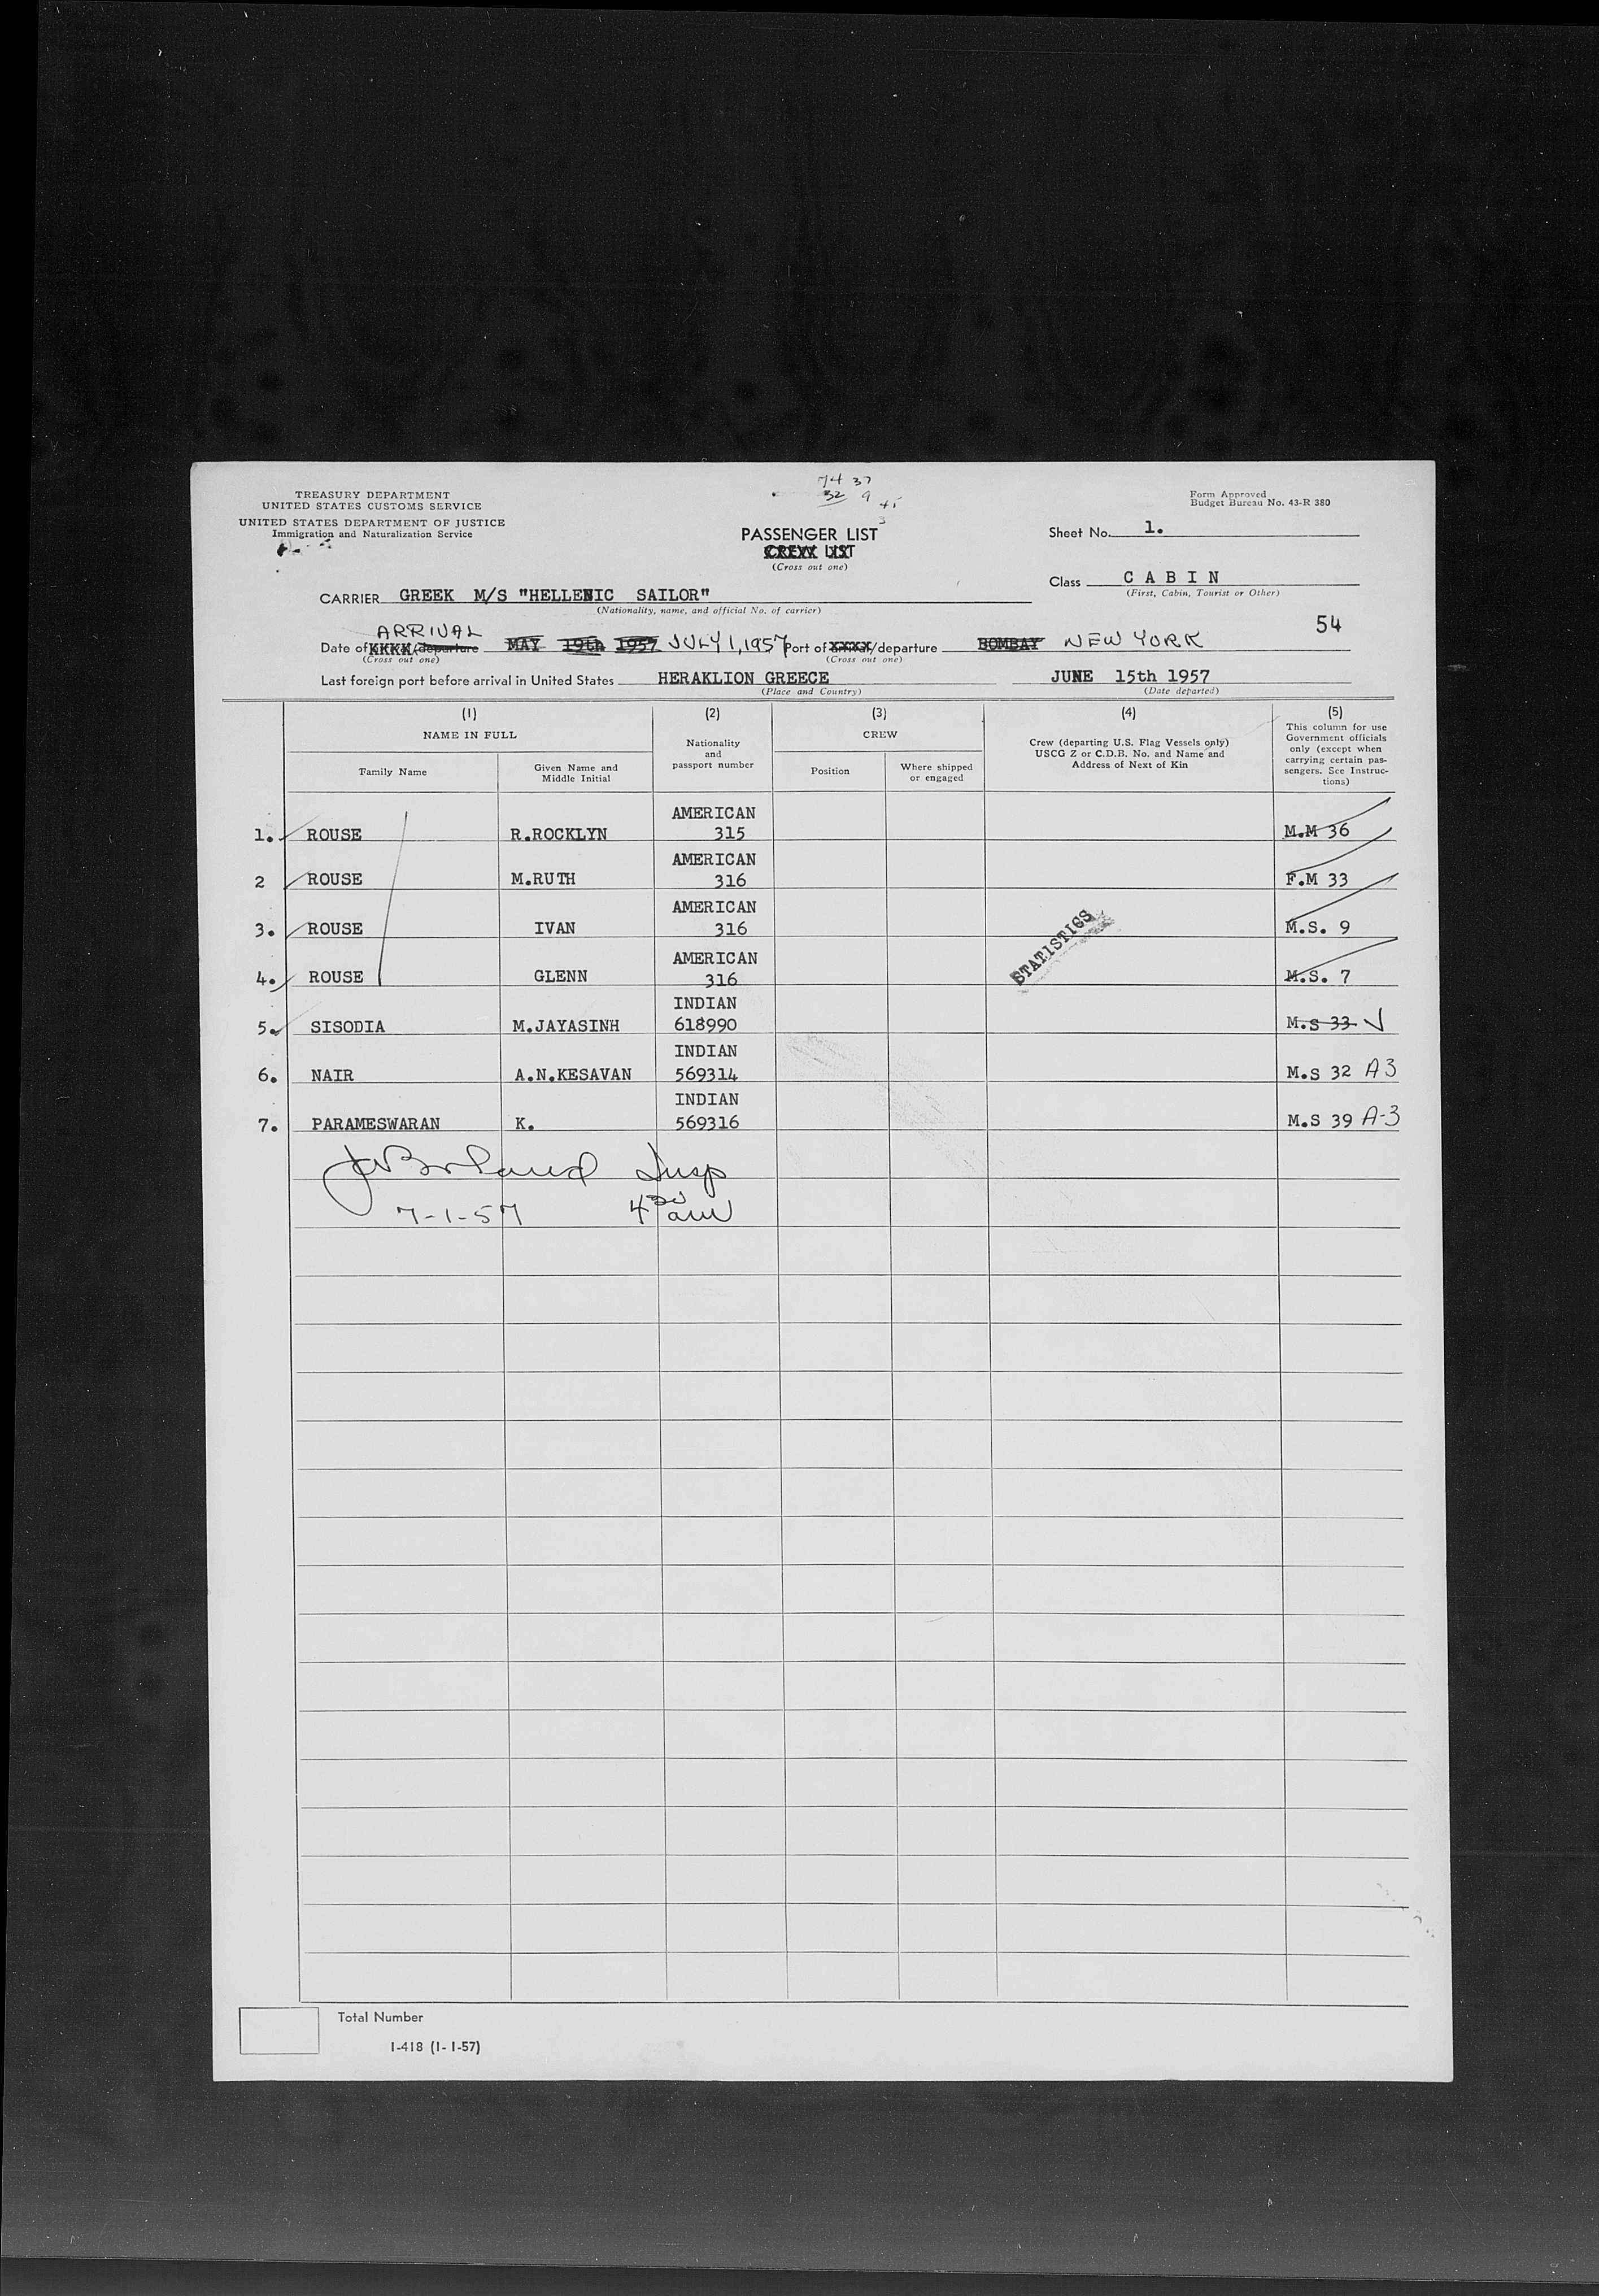 TREASURY DEPARTMENT
UNITED STATES CUSTOMS SERVICE
UNITED STATES DEPARTMENT OF JUSTICE
Immigration and Naturalization Service
74 37
32 9 45
3
PASSENGER LIST
CREW LIST
(Cross out one)
Form Approved
Budget Bureau No. 43-R 380
Sheet No. 1.
Class C A B I N
(First, Cabin, Tourist or Other)
CARRIER GREEK M/S "HELLENIC SAILOR"
(Nationality, name, and official No. of carrier)
54
ARRIVAL
Date of XXXX/departure MAY 19th 1957 JULY 1, 1957 Port of XXXX/departure BOMBAY NEW YORK
(Cross out one) (Cross out one)
Last foreign port before arrival in United States HERAKLION GREECE JUNE 15th 1957
(Place and Country) (Date departed)
(1) (2) (3) (4) (5)
NAME IN FULL
Family Name
Given Name and Middle Initial
Nationality and passport number
CREW
Position
Where shipped or engaged
Crew (departing U.S. Flag Vessels only) USCG Z or C.D.B. No. and Name and Address of Next of Kin
This column for use Government officials only (except when carrying certain passengers. See Instructions)
AMERICAN
1. ROUSE R.ROCKLYN 315 M.M 36
AMERICAN
2 ROUSE M.RUTH 316 F.M 33
AMERICAN
3. ROUSE IVAN 316 M.S. 9
STATISTICS
AMERICAN
4. ROUSE GLENN 316 M.S. 7
INDIAN
5. SISODIA M.JAYASINH 618990 M.S 33
INDIAN
6. NAIR A.N.KESAVAN 569314 M.S 32 A3
INDIAN
7. PARAMESWARAN K. 569316 M.S 39 A-3
Insp
7-1-57 4 30 am
Total Number
I-418 (1-1-57)